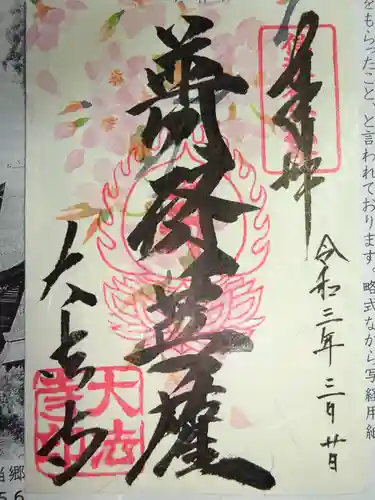 をもらったこと、と言われております。略式ながら写経用紙
奉拝
令和三年三月廿日
普賢菩薩
大法寺
大法
寺印
当郷
56